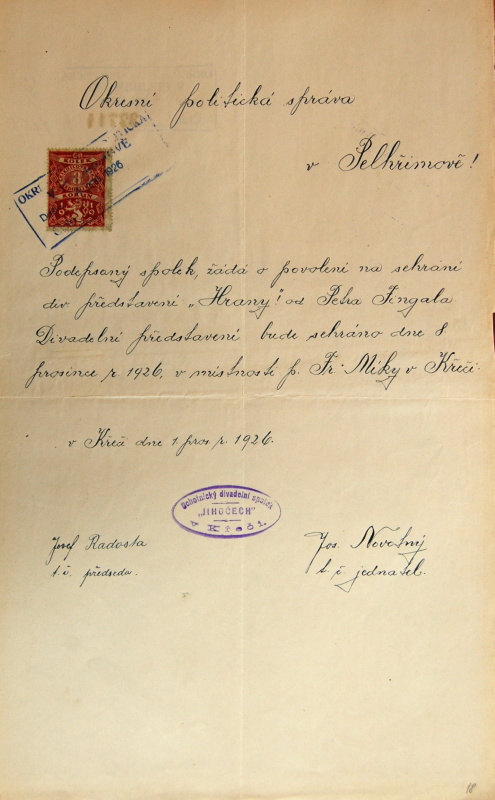 Okresní politická správa
v Pelhřimově!
KOLEK
5
KORUN
1926
Podepsaný spolek, žádá o povolení na sehrání
div. představení „Hrany!" od Petra Fingala.
Divadelní představení bude sehráno dne 8
prosince r. 1926, v místnosti p. Fr. Míky v Křeči.
v Křeči dne 1 pros. r. 1926.
Ochotnický divadelní spolek
„JIHOČECH"
v Křeči.
Josef Radosta
t. č. předseda.
Jos. Novotný
t. č. jednatel.
18